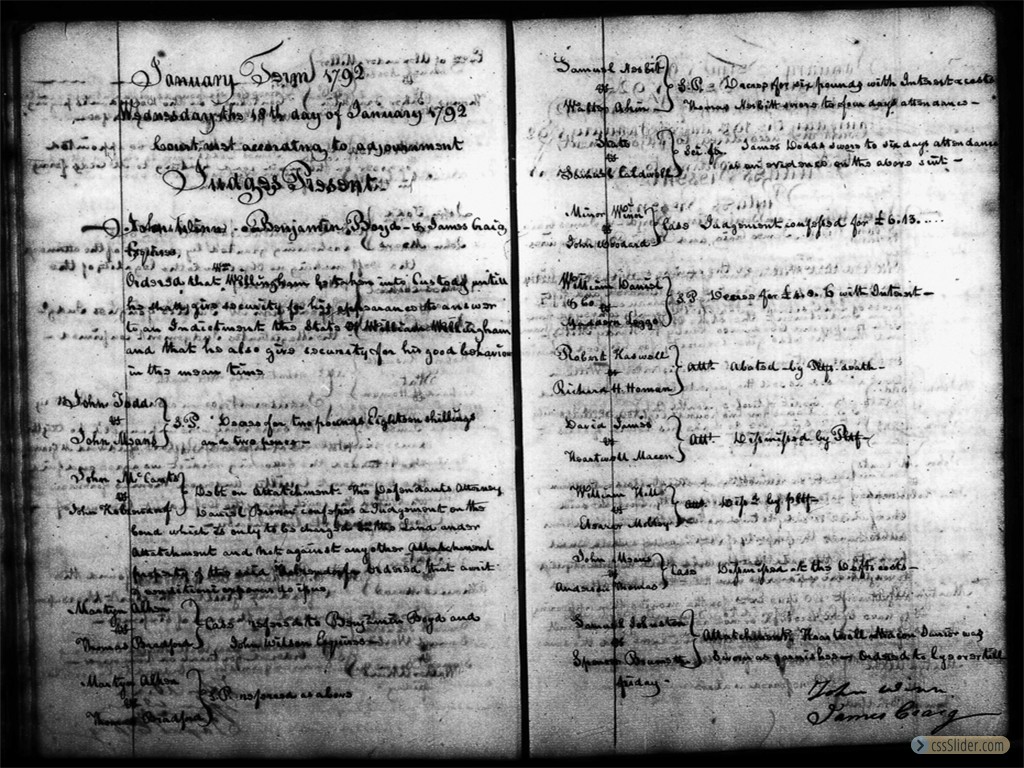 January Term 1792
Wednesday the 18th day of January 1792
Court met according to adjournment
Judges Present
John Winn Benjamin Boyd & James Craig
Esquires
Ordered that Wm Willingham be taken into Custody untill
he shall give security for his appearance to answer
to an Indictment the State vs William Willingham
and that he also give security for his good behavior
in the mean time
John Todd
vs
John Means
S.P. Decree for two pounds Eighteen shillings
and two pence
John McCants
vs
John
Debt on Attatchment. The Defendants Attorney
Daniel Brown confesses a Judgement on the
bond which is only to be charged on the Land under
Attatchment and not against any other Attatchment
property of the said Ordered that a writ
of
Martyn Alken
vs
Thomas Bradford
Case refered to Benjamin Boyd and
John Willson Esquires
Martyn Alken
vs
Thomas Bradford
S.P. refered as above
Samuel Nesbit
vs
S.P. Decree for six pounds with Interest & costs
Thomas Nesbitt swore to four days attendance
State
vs
Caldwell
Sci fa James Dodds swore to six days attendance
as an evidence on the above suit
Minor Winn
vs
John Woodard
Case Judgement confessed for £6.13.
William Daniel
& Co
vs
S.P. Decree for £ with Interest
Robert Haswell
vs
Richard H. Homan
Attt Abated by Pltfs death
David James
vs
Heartwell Macon
Attt Dismissed by Pltf
William Hill
vs
Eleanor
Att. by pltf
John Means
vs
Andrew Thomas
Case Dismissed at the Defts costs
Samuel Johnston
vs
Spencer
Attatchment Heartwell Macon Junior was
sworn as garnishee Ordered to lye over till
friday
John Winn
James Craig
cssSlider.com